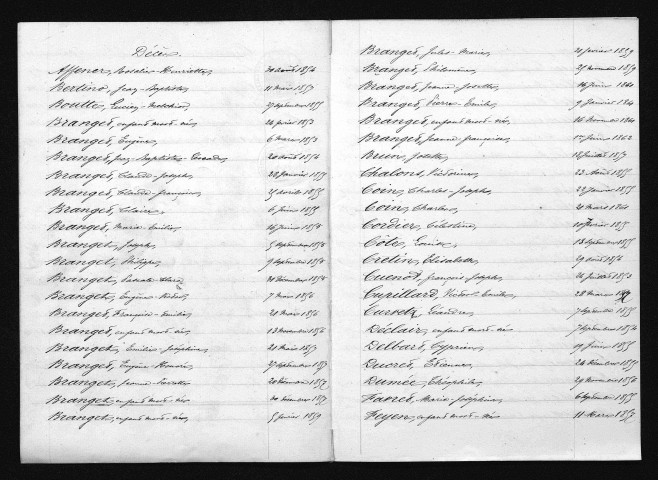 Décès
Affener, Rosalie Henriette, 30 août 1854
Bertino, Jean-Baptiste, 11 mars 1857
Boulte, Lucien Melchior, 27 septembre 1855
Branget, enfant mort-né, 24 février 1853
Branget, Eugène, 6 mars 1853
Branget, Jean-Baptiste 20 août 1854
Branget, Claude-Joseph, 28 janvier 1855
Branget, Claude-François, 25 août 1855
Branget, Claire, 6 juin 1855
Branget, Marie-Emilie, 14 février 1856
Branget, Joseph, 5 septembre 1856
Branget, Philippe, 9 septembre 1856
Branget, 30 décembre 1856
Branget, Eugène 7 mars 1856
Branget, Françoise-Emilie, 21 mars 1856
Branget, enfant mort-né, 13 novembre 1856
Branget, Emilie-Joséphine, 21 mars 1857
Branget, Eugène-Honoré, 27 septembre 1857
Branget, Jeanne 20 décembre 1857
Branget, enfant mort-né, 20 décembre 1857
Branget, enfant mort-né, 5 février 1859
Branget, Jules-Marie, 21 février 1859
Branget, Philomène, 25 novembre 1859
Branget, Jeanne-Josette, 16 février 1860
Branget, Pierre-Emile, 9 janvier 1861
Branget, enfant mort-né, 16 novembre 1860
Branget, Jeanne Françoise, 1er février 1862
Brun, Josette, 12 juillet 1857
Chalons, Victorine, 22 août 1855
Coin, Charles-Joseph, 22 janvier 1855
Coin, Charles, 20 mars 1861
Cordier, Célestine, 10 février 1855
Côte, Louise, 13 septembre 1855
Cretin, Elisabeth, 29 août 1856
Cuenot, François-Joseph, 24 juillet 1853
Cupillard, Victor-Emile, 28 mars
Curvelz, Léandre, 7 septembre 1855
Déclair, enfant mort-né, 7 septembre 1854
Delbard, Cyprien, 19 février 1855
Ducret, Etienne, 24 décembre 1855
Dumée, Théophile, 29 novembre 1856
Favret, Marie-Joséphine, 6 septembre 1855
Feyen, enfant mort-né 11 mars 1857